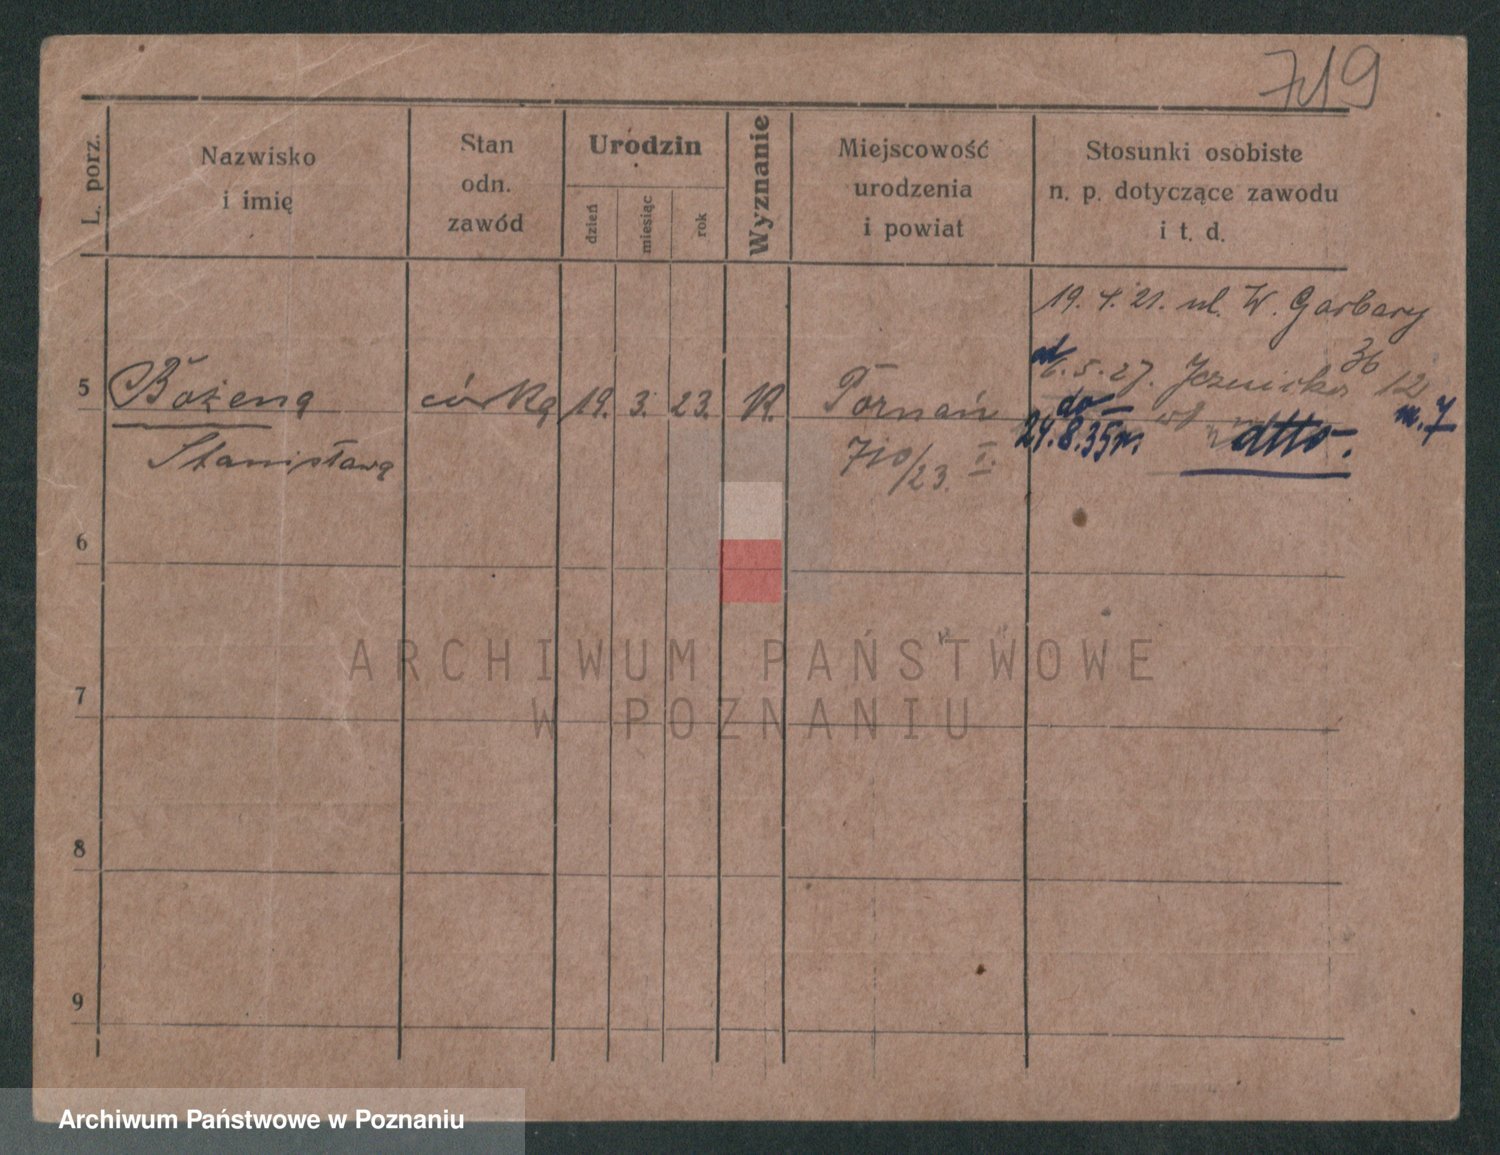 719
L. porz.
Nazwisko
i imię
Stan
odn.
zawód
Urodzin
dzień
miesiąc
rok
Wyznanie
Miejscowość
urodzenia
i powiat
Stosunki osobiste
n. p. dotyczące zawodu
i t. d.
19. 4. 21. ul. W. Garbary
36
od 6. 5. 27. 12
5 Bożena córka 19. 3. 23. K. Poznań do m. 7
Stanisława 710/23. I. 24.8.35r. dtto.
6
7
8
9
ARCHIWUM PAŃSTWOWE
W POZNANIU
Archiwum Państwowe w Poznaniu